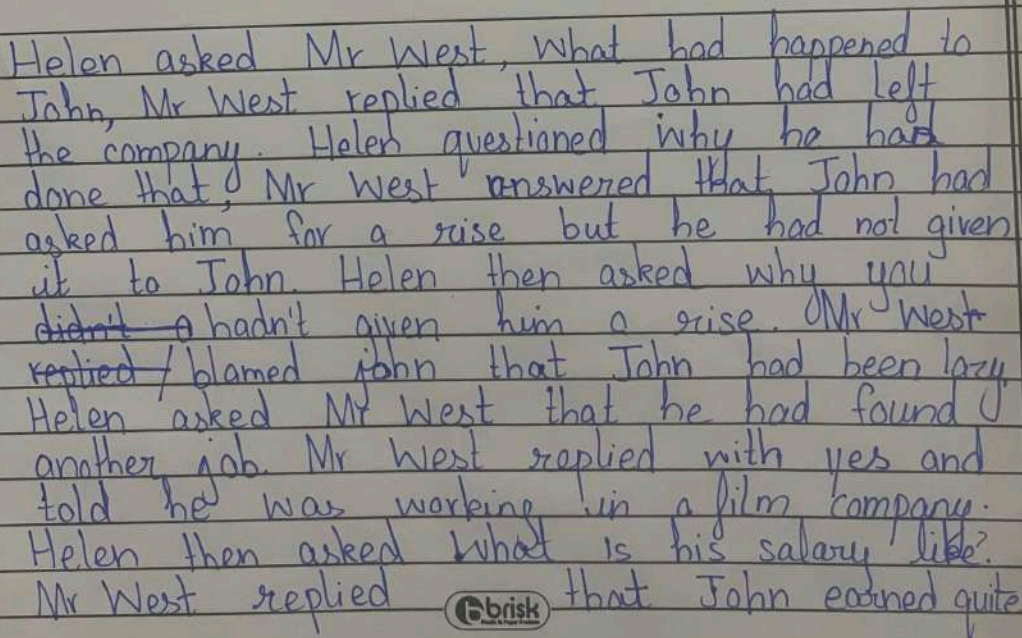 Helen asked Mr West, What had happened to
John, Mr West replied that John had left
the company. Helen questioned why he had
done that, Mr West answered that John had
asked him for a rise but he had not given
it to John. Helen then asked why you
didn't a hadn't given him a rise. Mr West
replied / blamed john that John had been lazy.
Helen asked Mr West that he had found
another job. Mr West replied with yes and
told he was working in a film company.
Helen then asked What is his salary like?
Mr West replied that John earned quite
brisk